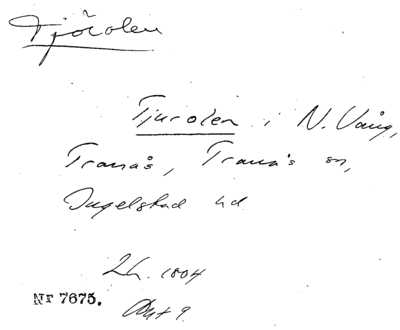 Tjörolen
Tjurolen i N. Vång,
Tranås, Tranås sn,
Ingelstad hd
Lh. 1804
Nr 7675.
Akt 9